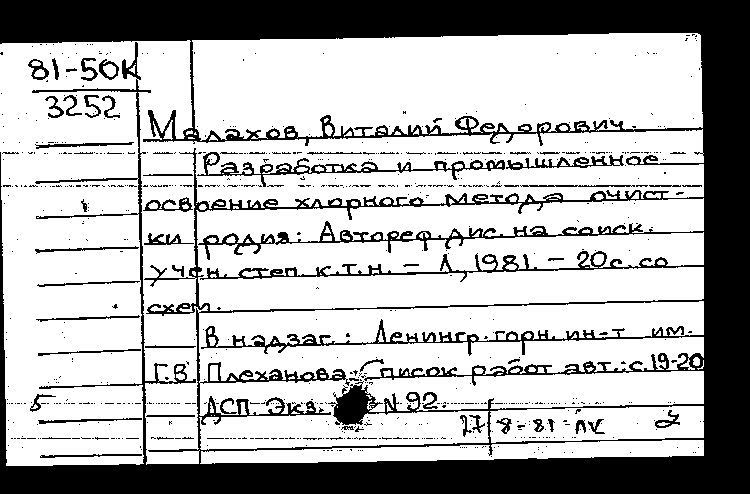 81-50К
3252
Малахов, Виталий Федорович.
Разработка и промышленное
освоение хлорного метода очист-
ки родия: Автореф. дис. на соиск.
учен. степ. к.т.н. - Л., 1981. - 20с. со
схем.
В надзаг.: Ленингр. горн. ин-т им.
Г.В. Плеханова. Список работ авт.: с. 19-20
5
ДСП. Экз. N 92.
27 8-81